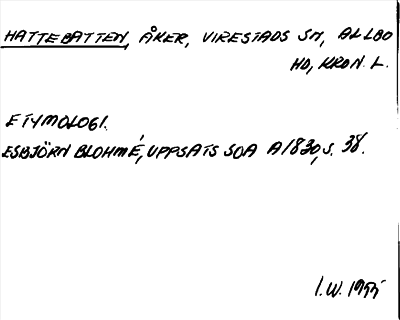 HATTEBATTEN, ÅKER, VIRESTADS SN, ALLBO
HD, KRON. L.
ETYMOLOGI.
ESBJÖRN BLOHMÉ, UPPSATS SOA A1830, S. 38.
I.W. 1995